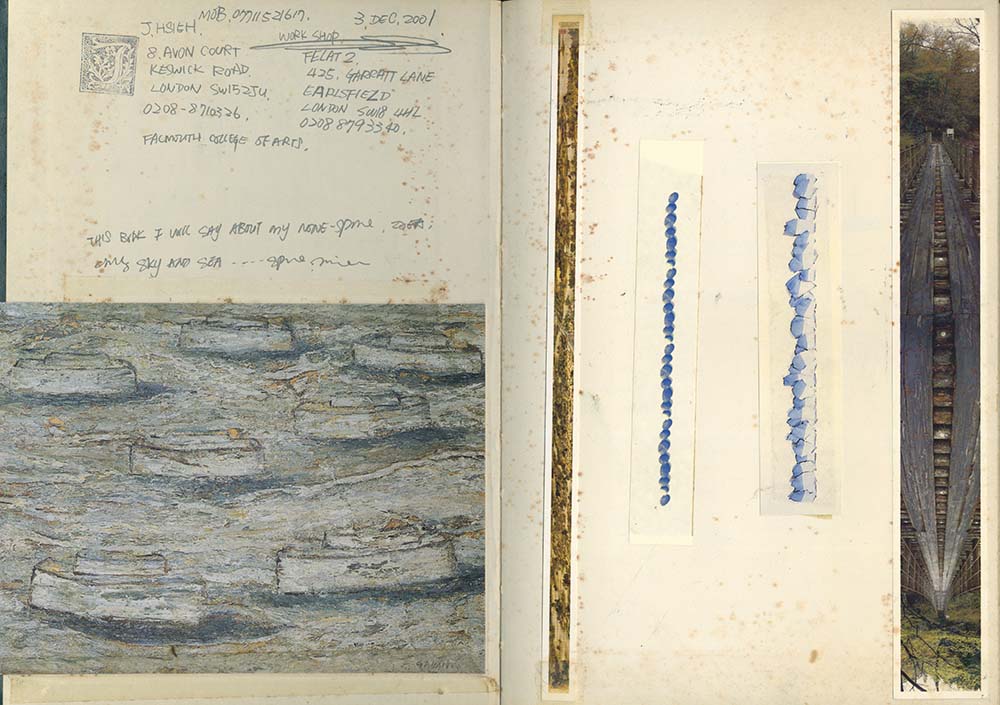 J. HSIEH. MOB. 07711521617. 3. DEC, 2001
8. AVON COURT
KESWICK ROAD.
LONDON SW15 2JU.
0208-8710326.
FALMOUTH COLLEGE OF ARTS.
WORK SHOP
FLAT 2.
425, GARRATT LANE
EARLSFIELD
LONDON SW18 4HL
0208 8793340.
THIS BOOK I WILL SAY ABOUT MY NONE-Spine.
only SKY AND SEA ---- spine